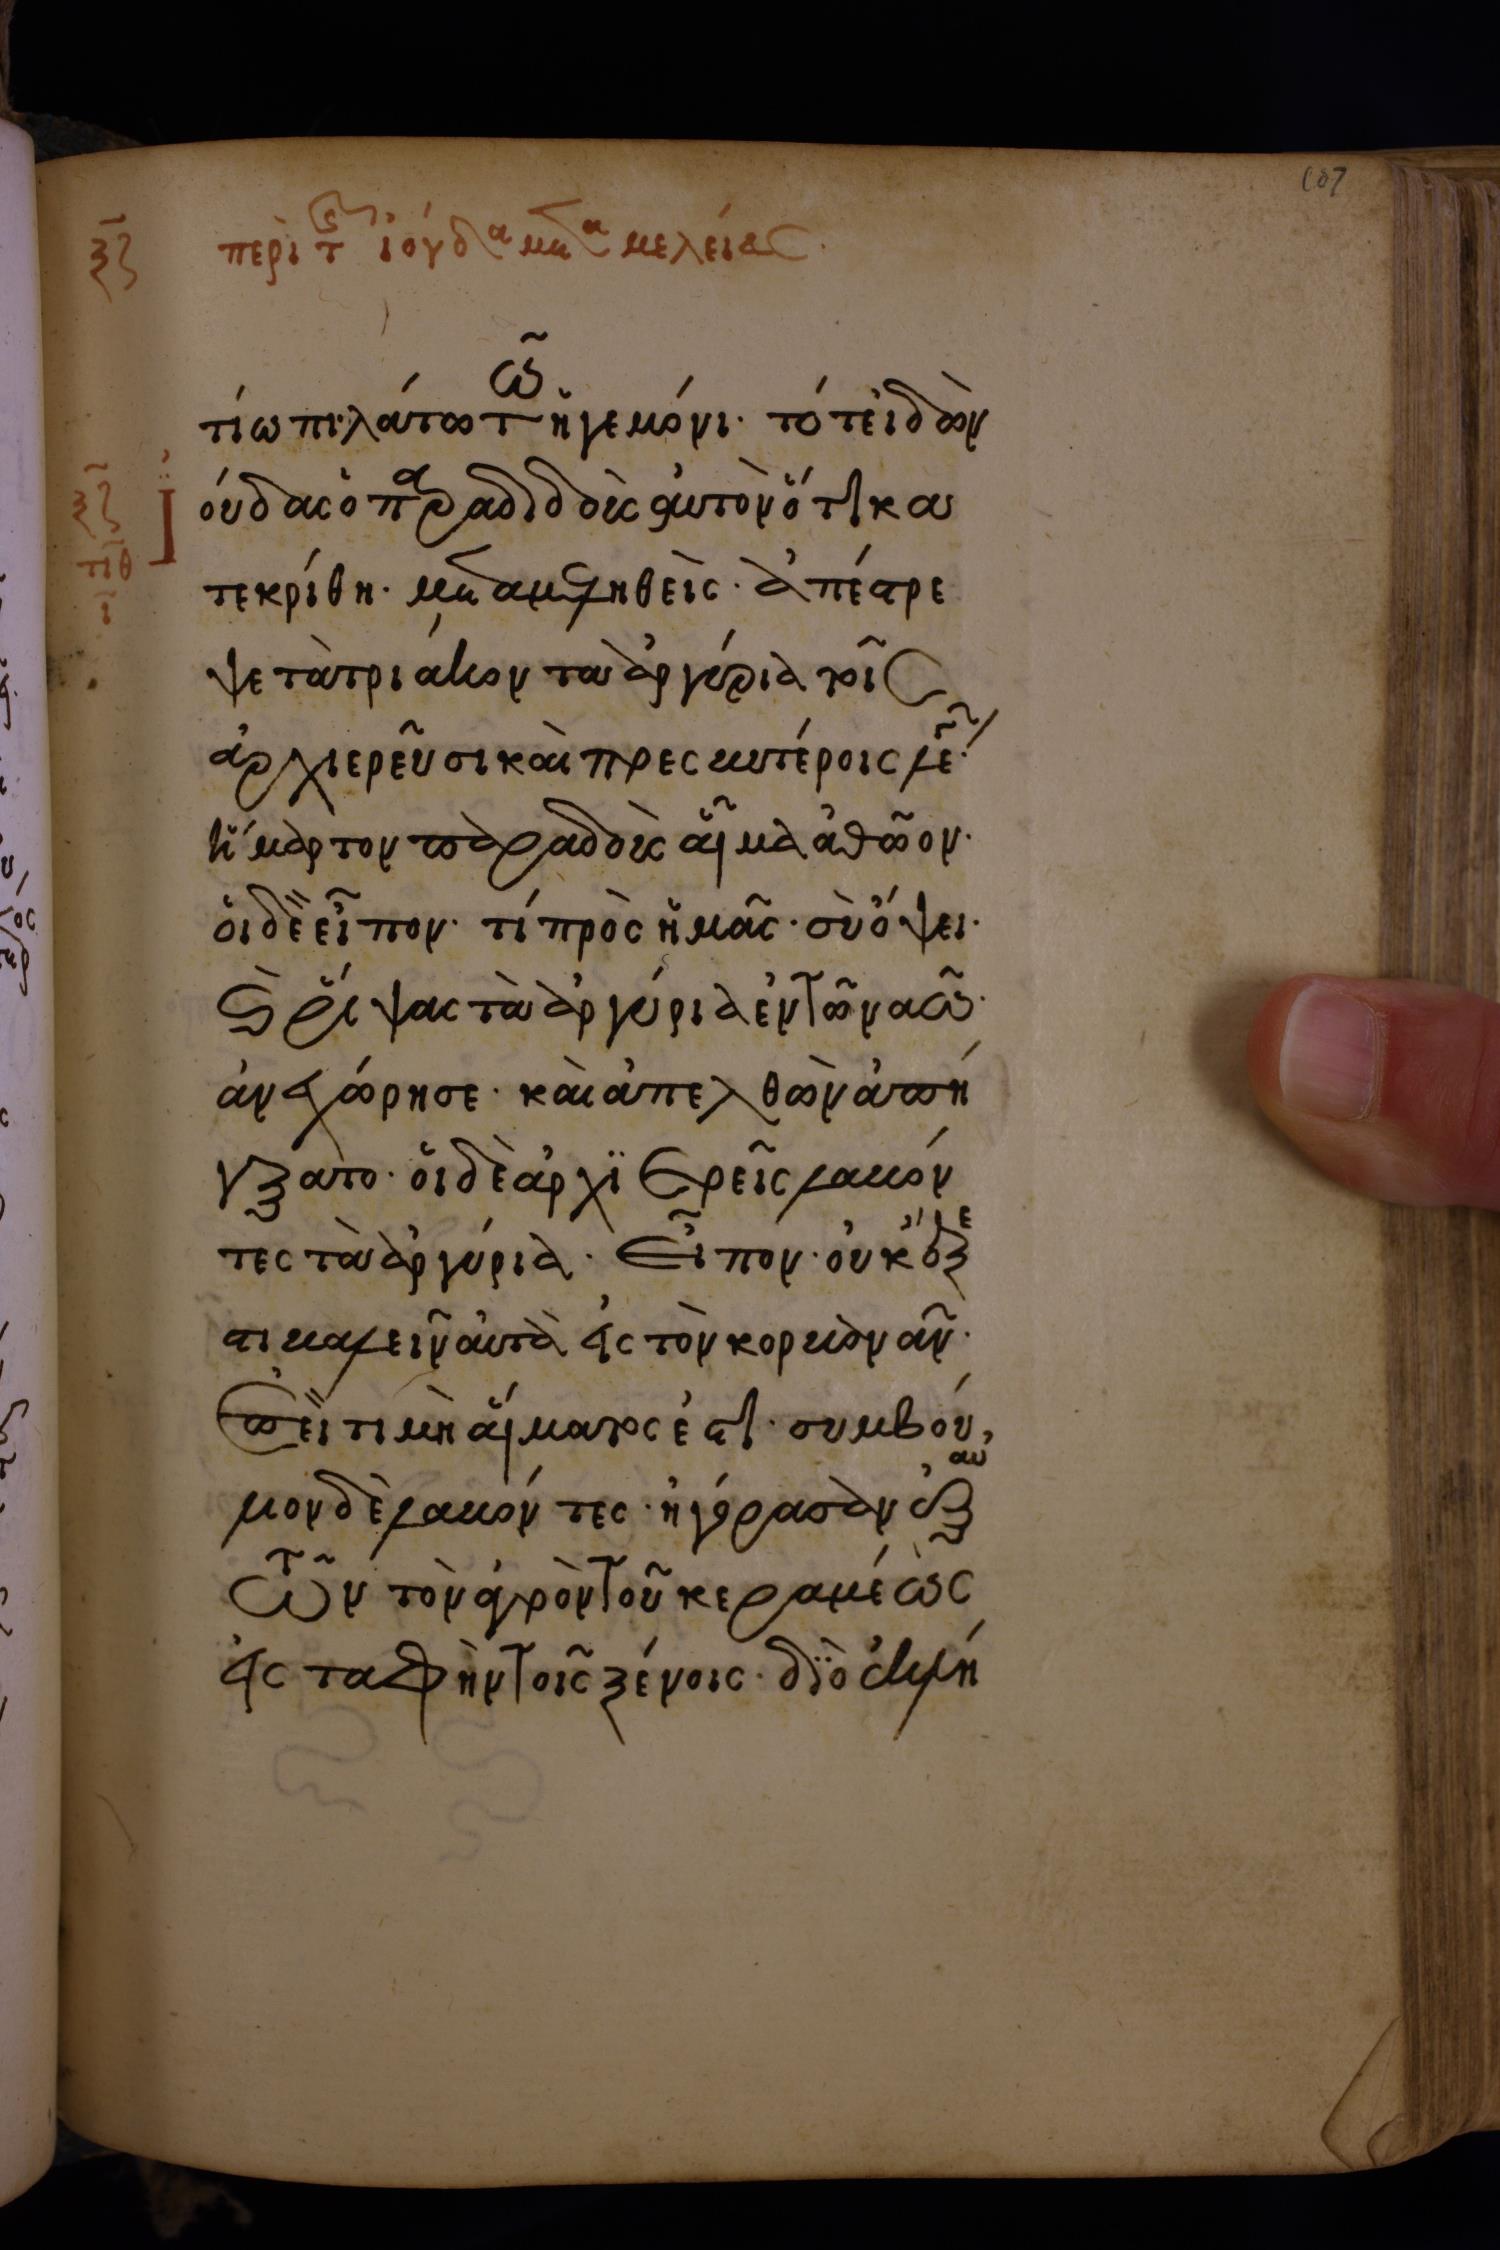 107
ξζ περὶ τῆς ἰούδα μεταμελείας.
τίω πιλάτω τῶ ἡγεμόνι· τότε ἰδὼν
ξζ Ἰ ούδας ὁ παραδιδοὺς αὐτὸν ὅτι κα
τιθ ι τεκρίθη· μεταμεληθεὶς· ἀπέστρε
ψε τὰ τριάκοντα ἀργύρια τοῖς
ἀρχιερεῦσι καὶ πρεσβυτέροις λέγων·
ἥμαρτον παραδοὺς αἷμα ἀθῶον·
οἱ δὲ εἶπον· τί πρὸς ἡμᾶς· σὺ ὄψει·
καὶ ῥίψας τὰ ἀργύρια ἐν τῶ ναῶ·
ἀνεχώρησε· καὶ ἀπελθὼν ἀπή
γξατο· οἱ δὲ ἀρχϊερεῖς λαβόν
τες τὰ ἀργύρια· εἶπον· οὐκ ἔξε
στι βαλεῖν αὐτὰ εἰς τὸν κορβὰν ἂν·
ἐπεὶ τιμὴ αἵματος ἐστι· συμβού
λιον δὲ λαβόντες· ἠγόρασαν ἐξ αὐ
τῶν τὸν ἀγρὸν τοῦ κεραμέως
εἰς ταφὴν τοῖς ξένοις· δϊὸ ἐκλή